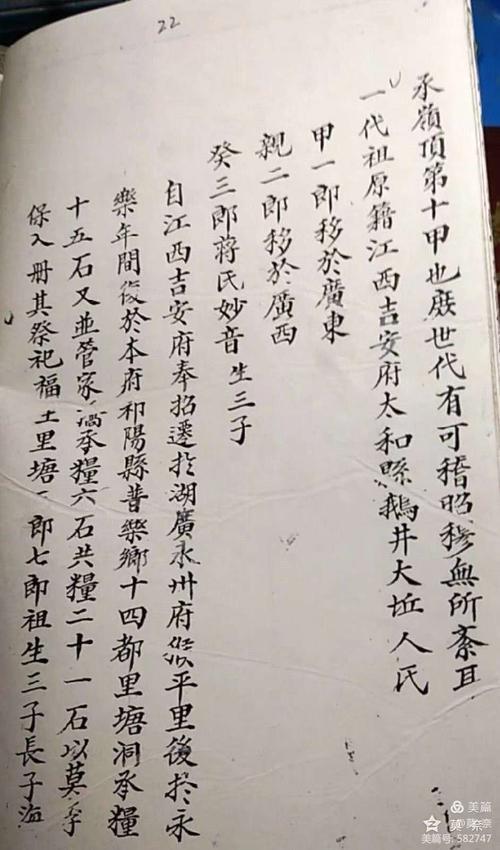 22
承嶺頂第十甲也庶世代有可稽昭穆無所紊耳
一代祖原籍江西吉安府太和縣鵝井大坵人氏
甲一郎移於廣東
親二郎移於廣西
癸三郎蔣氏妙音生三子
自江西吉安府奉招遷於湖廣永州府 平里後於永
樂年間復於本府祁陽縣普樂鄉十四都里塘洞承糧
十五石又並管家 承糧六石共糧二十一石以莫季
保入冊其祭祀福土里塘一郎七郎祖生三子長子海
美篇
@莫奈
莫奈
美篇号:582747